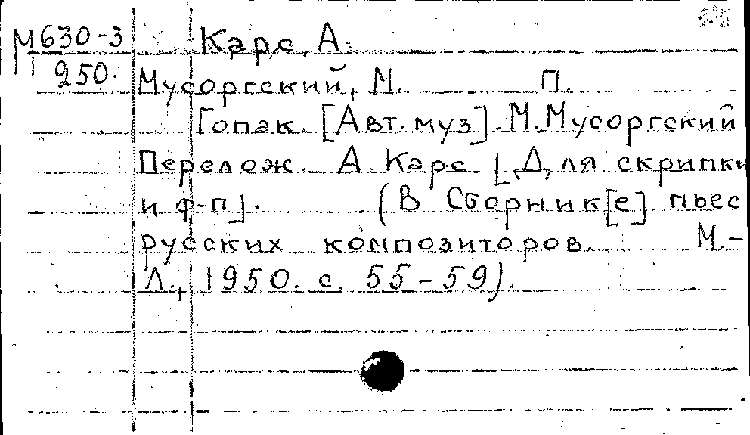 М630-3 Карс, А.
250.
Мусоргский, М. П.
Гопак. [Авт. муз]. М. Мусоргский
Перелож. А Карс [Для скрипки
и ф-п]. (В Сборник[е] пьес
русских композиторов. М.-
Л., 1950. с. 55-59).